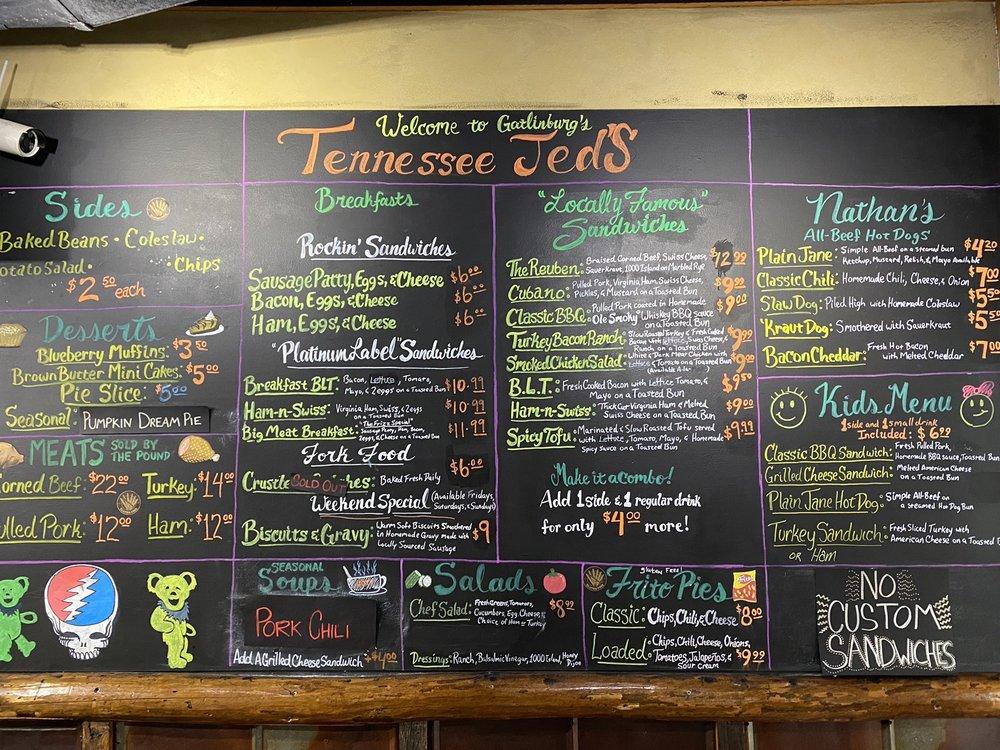 Welcome to Gatlinburg's
Tennessee Jed's
Sides
Baked Beans • Coleslaw •
otato Salad • • Chips
$2.50 each
Desserts
Blueberry Muffins: $3.50
Brown Butter Mini Cakes: $5.00
Pie Slice: $5.00
Seasonal: Pumpkin Dream Pie
MEATS SOLD BY THE POUND
orned Beef: $22.00 Turkey: $14.00
ulled Pork: $12.00 Ham: $12.00
Breakfasts
Rockin' Sandwiches
Sausage Patty, Eggs, & Cheese $6.00
Bacon, Eggs, & Cheese $6.00
Ham, Eggs, & Cheese $6.00
"Platinum Label" Sandwiches
Breakfast BLT: Bacon, Lettuce, Tomato,
Mayo, & 2 eggs on a Toasted Bun $10.99
Ham-n-Swiss: Virginia Ham, Swiss, & 2 eggs
on a Toasted Bun $10.99
Big Meat Breakfast: "The Frizz Special"
Sausage Patty, Ham, Bacon,
2 eggs, & Cheese on a Toasted Bun $11.99
Fork Food
Crustle SOLD OUT hes: Baked Fresh Daily $6.00
Weekend Special (Available Fridays,
Saturdays, & Sundays)
Biscuits & Gravy: Warm Soft Biscuits Smothered
in Homemade Gravy made with
Locally Sourced Sausage $9
"Locally Famous"
Sandwiches
The Reuben: Braised Corned Beef, Swiss Cheese,
Sauerkraut, 1000 Island on Marbled Rye $12.99
Cubano: Pulled Pork, Virginia Ham, Swiss Cheese,
Pickles, & Mustard on a Toasted Bun $9.99
Classic BBQ: Pulled Pork coated in Homemade
Ole Smoky Whiskey BBQ sauce
on a Toasted Bun $9.00
Turkey Bacon Ranch: Slow Roasted Turkey & Fresh Cooked
Bacon with Lettuce, Swiss Cheese, &
Ranch on a Toasted Bun $9.99
Smoked Chicken Salad: White & Dark Meat Chicken with
Lettuce & Tomato on a Toasted Bun $9.00
B.L.T.: Fresh Cooked Bacon with Lettuce Tomato, &
Mayo on a Toasted Bun $9.50
Ham-n-Swiss: Thick Cut Virginia Ham & Melted
Swiss Cheese on a Toasted Bun $9.00
Spicy Tofu: Marinated & Slow Roasted Tofu served
with Lettuce, Tomato, Mayo, & Homemade
Spicy Sauce on a Toasted Bun $9.99
Make it a Combo!
Add 1 side & 1 regular drink
for only $4.00 more!
Nathan's
All-Beef Hot Dogs
Plain Jane: Simple All-Beef on a steamed bun
Ketchup, Mustard, Relish, & Mayo Available $4.20
Classic Chili: Homemade Chili, Cheese, & Onion $7.00
Slaw Dog: Piled High with Homemade Coleslaw $5.50
'Kraut Dog: Smothered with Sauerkraut $5.50
Bacon Cheddar: Fresh Hot Bacon
with Melted Cheddar $7.00
Kids Menu
1 side and 1 small drink
Included: $6.99
Classic BBQ Sandwich: Fresh Pulled Pork,
Homemade BBQ Sauce, Toasted Bun
Grilled Cheese Sandwich: Melted American Cheese
on a Toasted Bun
Plain Jane Hot Dog: Simple All-Beef on
a steamed Hot Dog Bun
Turkey Sandwich: Fresh Sliced Turkey with
American Cheese on a Toasted B
or Ham
SEASONAL
Soups
PORK CHILI
Add A Grilled Cheese Sandwich: $4.00
Salads
Chef Salad: Fresh Greens, Tomatoes,
Cucumbers, Egg, Cheese, &
Choice of Ham or Turkey $8.99
Dressings: Ranch, Balsamic Vinegar, 1000 Island, Honey
Dijon
Gluten Free!
Frito Pies
Classic: Chips, Chili, & Cheese $8.00
Loaded: Chips, Chili, Cheese, Onions,
Tomatoes, Jalapeños, &
Sour Cream $9.99
NO
CUSTOM
SANDWICHES